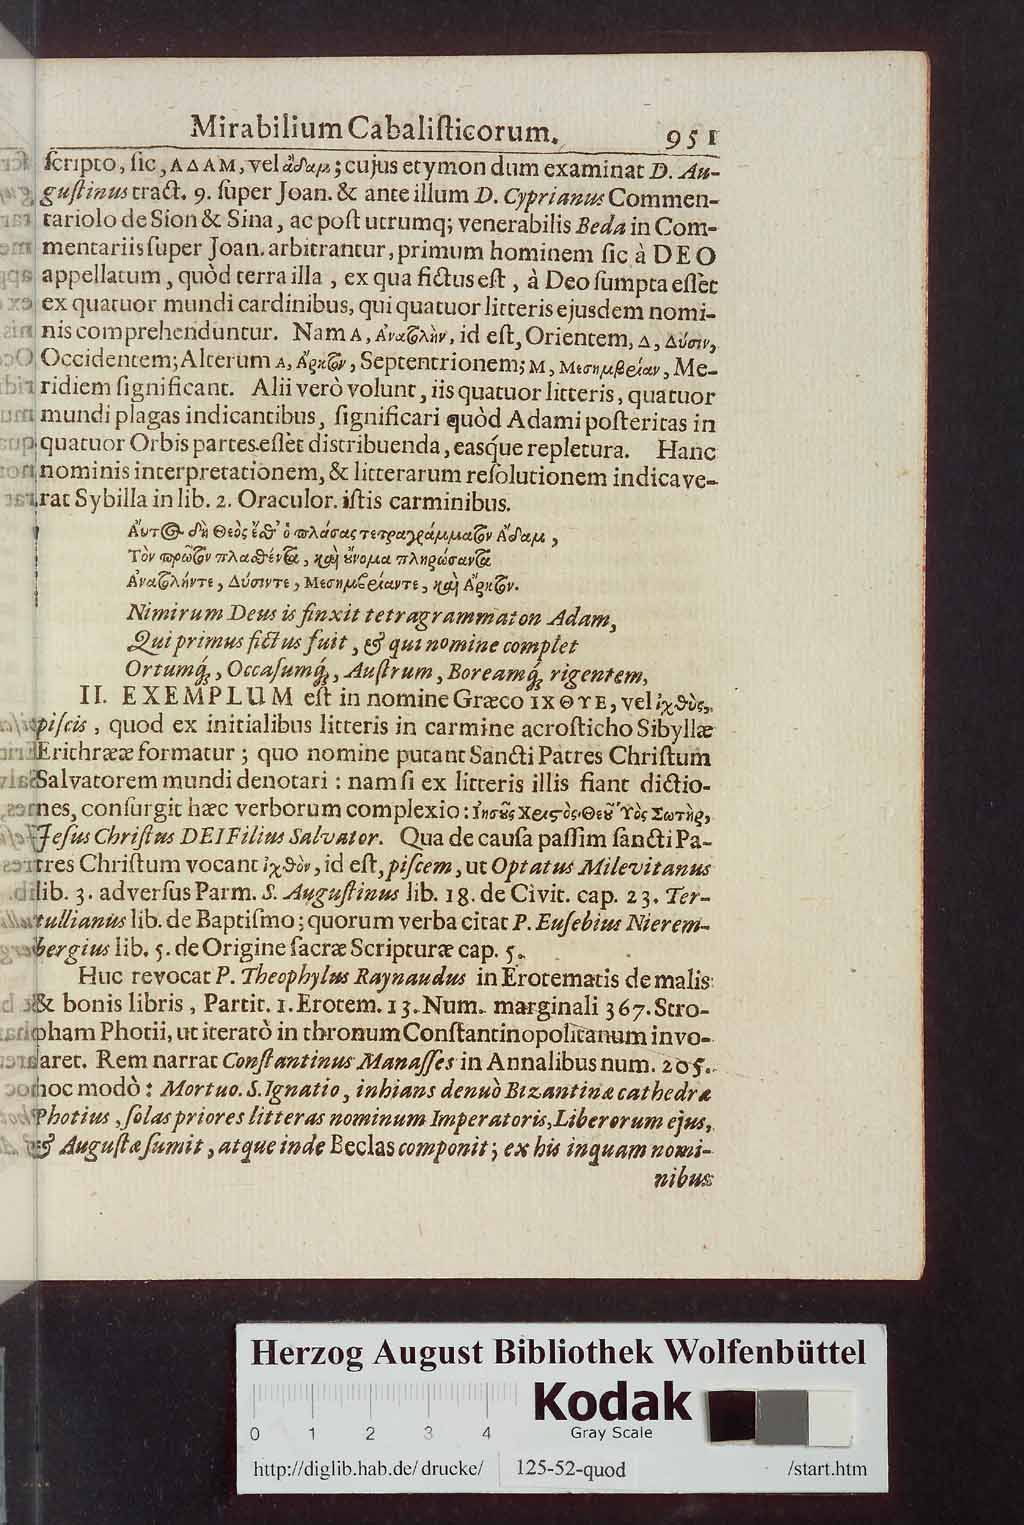 Mirabilium Cabaliſticorum. 951
ſcripto, ſic, ΑΔΑΜ, vel ἀδαμ; cujus etymon dum examinat D. Au-
guſtinus tract. 9. ſuper Joan. & ante illum D. Cyprianus Commen-
tariolo de Sion & Sina, ac poſt utrumq; venerabilis Beda in Com-
mentariis ſuper Joan. arbitrantur, primum hominem ſic à DEO
appellatum, quòd terra illa, ex qua fictus eſt, à Deo ſumpta eſſèt
ex quatuor mundi cardinibus, qui quatuor litteris ejusdem nomi-
nis comprehenduntur. Nam Α, Ἀνατολὴν, id eſt, Orientem, Δ, Δύσιν,
Occidentem; Alterum Α, Ἄρκτον, Septentrionem; Μ, Μεσημβρείαν, Me-
ridiem ſignificant. Alii verò volunt, iis quatuor litteris, quatuor
mundi plagas indicantibus, ſignificari quòd Adami poſteritas in
quatuor Orbis partes eſſèt distribuenda, easq́ue repletura. Hanc
nominis interpretationem, & litterarum reſolutionem indicave-
rat Sybilla in lib. 2. Oraculor. iſtis carminibus.
Ἀυτὸς δὴ Θεὸς ἔσθ' ὁ πλάσας τετραγράμματον Ἄδαμ,
Τὸν πρῶτον πλασθέντα, καὶ ὄνομα πληρώσαντα
Ἀνατολήντε, Δύσιντε, Μεσημβρείαντε, καὶ Ἄρκτον.
Nimirum Deus is finxit tetragrammaton Adam,
Qui primus fictus fuit, & qui nomine complet
Ortumq́;, Occaſumq́;, Auſtrum, Boreamq́; rigentem,
II. EXEMPLUM eſt in nomine Græco ΙΧΘΥΣ, vel ἰχθὺς,
piſcis, quod ex initialibus litteris in carmine acroſticho Sibyllæ
Erithrææ formatur; quo nomine putant Sancti Patres Chriſtum
Salvatorem mundi denotari: nam ſi ex litteris illis fiant dictio-
nes, conſurgit hæc verborum complexio: Ἰησοῦς Χρειστὸς Θεοῦ Ὑὸς Σωτὴρ,
Jeſus Chriſtus DEI Filius Salvator. Qua de cauſa paſſim ſancti Pa-
tres Chriſtum vocant ἰχθὺν, id eſt, piſcem, ut Optatus Milevitanus
lib. 3. adverſus Parm. S. Auguſtinus lib. 18. de Civit. cap. 23. Ter-
tullianus lib. de Baptiſmo; quorum verba citat P. Euſebius Nierem-
bergius lib. 5. de Origine ſacræ Scripturæ cap. 5.
Huc revocat P. Theophylus Raynaudus in Erotematis de malis
& bonis libris, Partit. 1. Erotem. 13. Num. marginali 367. Stro-
pham Photii, ut iteratò in thronum Conſtantinopolitanum invo-
laret. Rem narrat Conſtantinus Manaſſes in Annalibus num. 205.
hoc modò: Mortuo. S. Ignatio, inhians denuò Bizantinæ cathedræ
Photius, ſolas priores litteras nominum Imperatoris, Liberorum ejus,
& Auguſtæ ſumit, atque inde Beclas componit; ex his inquam nomi-
nibus
Herzog August Bibliothek Wolfenbüttel
0 1 2 3 4
Kodak
Gray Scale
http://diglib.hab.de/drucke/ 125-52-quod /start.htm